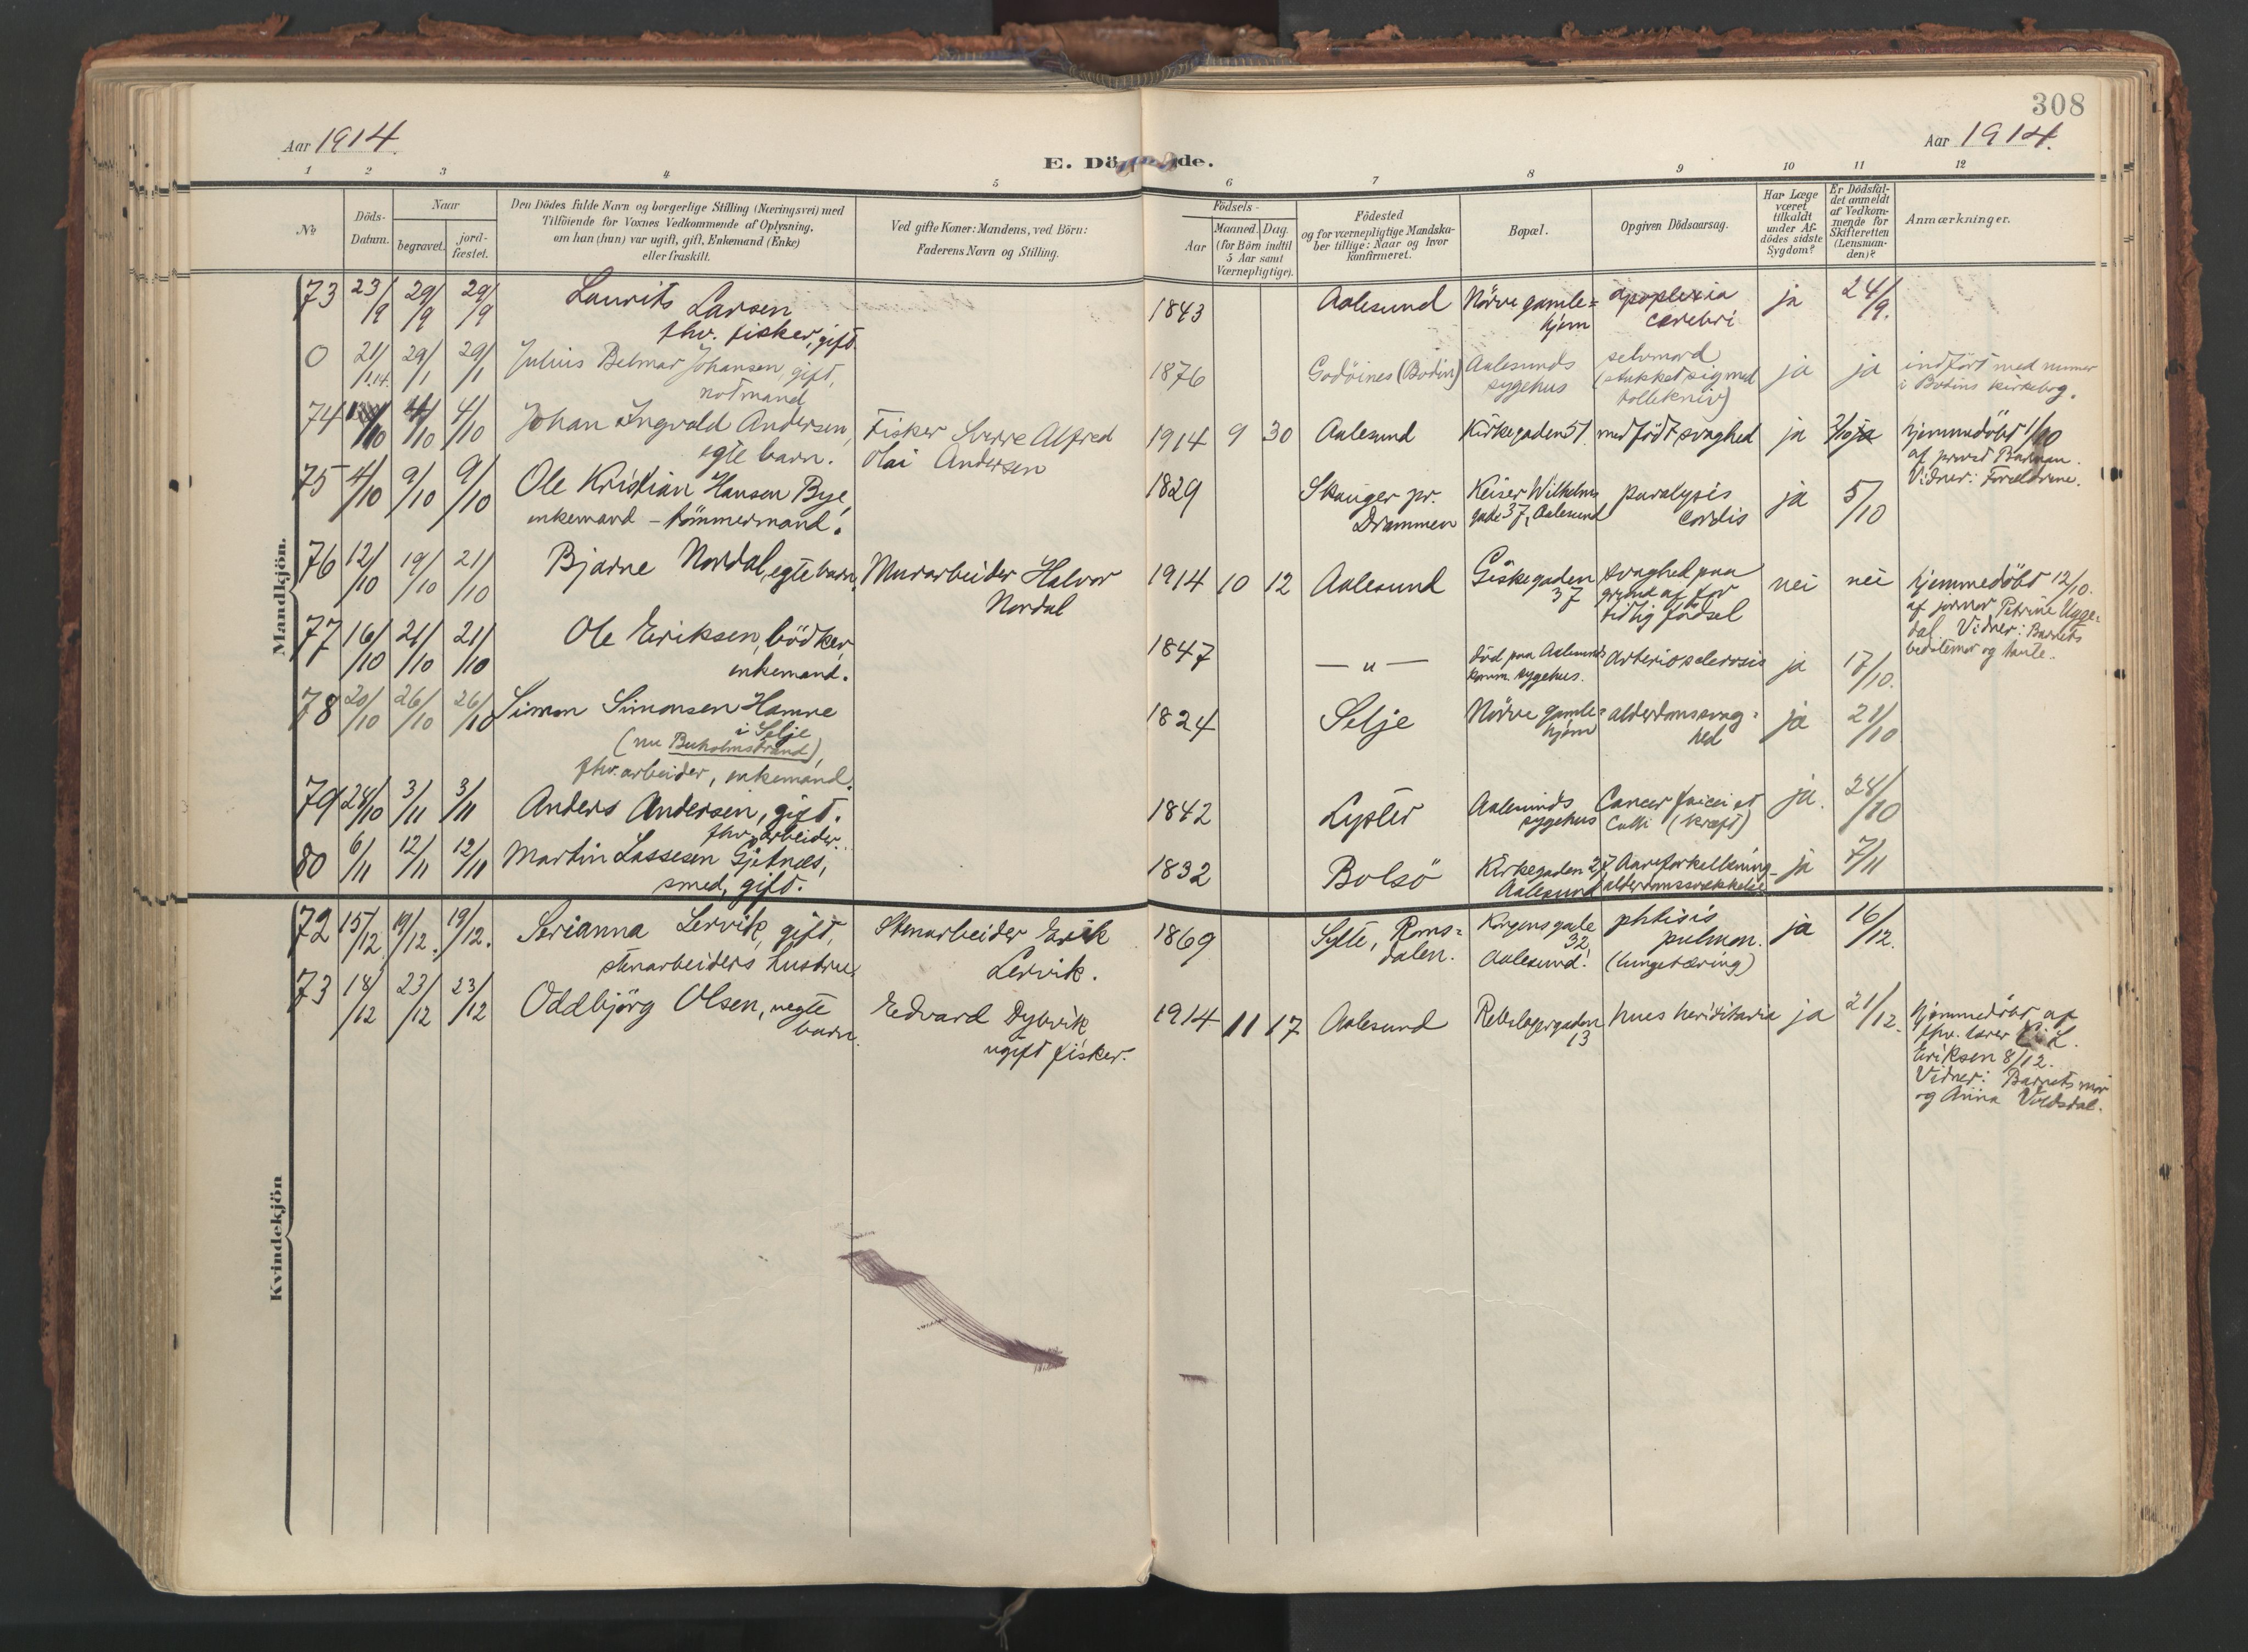 308
Aar 1914.
Aar 1914.
E. Dö de.
1 2 3 4 5 6 7 8 9 10 11 12
No
Döds-
Datum.
Naar
begravet.
jord-
fæstet.
Den Dödes fulde Navn og borgerlige Stilling (Næringsvei) med
Tilföiende for Voxnes Vedkommende af Oplysning,
om han (hun) var ugift, gift, Enkemand (Enke)
eller fraskilt.
Ved gifte Koner: Mandens, ved Börn:
Faderens Navn og Stilling.
Födsels-
Aar
Maaned. Dag.
(for Börn indtil
5 Aar samt
Værnepligtige).
Födested
og for værnepligtige Mandska-
ber tillige: Naar og hvor
konfirmeret.
Bopæl.
Opgiven Dödsaarsag.
Har Læge
været
tilkaldt
under Af-
dödes sidste
Sygdom?
Er Dödsfal-
det anmeldt
af Vedkom-
mende for
Skifteretten
(Lensman-
den)?
Anmærkninger.
Mandkjön.
73 23/9 29/9 29/9 Laurits Larsen
fhv. fisker, gift.
1843 Aalesund Nörve gamle=
hjem
apoplexia
cerebri
ja 24/9.
0 21/1.14. 29/1 29/1 Julius Belmar Johansen, gift,
notmand
1876 Godöines (Bodin) Aalesunds
sygehus
selvmord
(stukket sig med
tollekniv)
ja ja indfört med nummer
i Bodins kirkebog.
74 /10 4/10 4/10 Johan Ingvald Andersen,
egte barn.
Fisker Sverre Alfred
Olai Andersen
1914 9 30 Aalesund Kirkegaden 51. medfödt svaghed ja 3/10 ja hjemmedöbt 1/10
af provst Barman.
Vidner: Forældrene.
75 4/10 9/10 9/10 Ole Kristian Hansen Bye,
enkemand - tömmermand.
1829 Skauger pr.
Drammen
Keiser Wilhelms
gade 37, Aalesund
paralysis
cordis
ja 5/10
76 12/10 19/10 21/10 Bjarne Nordal, egte barn,
Murarbeider Halvor
Nordal
1914 10 12 Aalesund Giskegaden
37
svaghed paa
grund af for
tidlig födsel
nei nei hjemmedöbt 12/10.
af jormor Petrine Ugge=
dal. Vidner: Barnets
bedstemor og tante.
77 16/10 21/10 21/10 Ole Eriksen, bödker,
enkemand.
1847 — " — död paa Aalesunds
komm. sygehus.
arteriosclerosis ja 17/10.
78 20/10 26/10 26/10 Simon Simonsen Hamre
i Selje
(nu Buholmstrand),
fhv. arbeider, enkemand.
1824 Selje Nörve gamle=
hjem
alderdomssvag=
hed
ja 21/10
79 28/10 3/11 3/11 Anders Andersen, gift.
fhv. arbeider.
1842 Lyster Aalesunds
sygehus
Cancer faciei et
Colli (kræft)
ja. 28/10
80 6/11 12/11 12/11 Martin Lassesen Gjetnes,
smed, gift.
1832 Bolsö Kirkegaden 27,
Aalesund
Aareforkalkning
alderdomssvækkelse
ja 7/11
Kvindekjön
72 15/12 19/12. 19/12. Serianna Lervik, gift,
stenarbeiders hustru.
Stenarbeider Erik
Lervik.
1869 Sylte, Roms=
dalen.
Kongensgade
32,
Aalesund.
phtisis
pulmon.
(lungetæring)
ja 16/12.
73 18/12 23/12 23/12 Oddbjörg Olsen, uegte
barn.
Edvard Dybvik
ugift fisker.
1914 11 17 Aalesund Rebslagergaden
13
lues heriditaria ja 21/12. hjemmedöbt af
fhv. lærer L.
Eriksen 8/12.
Vidner: Barnets mor
og Anna Voldsdal.